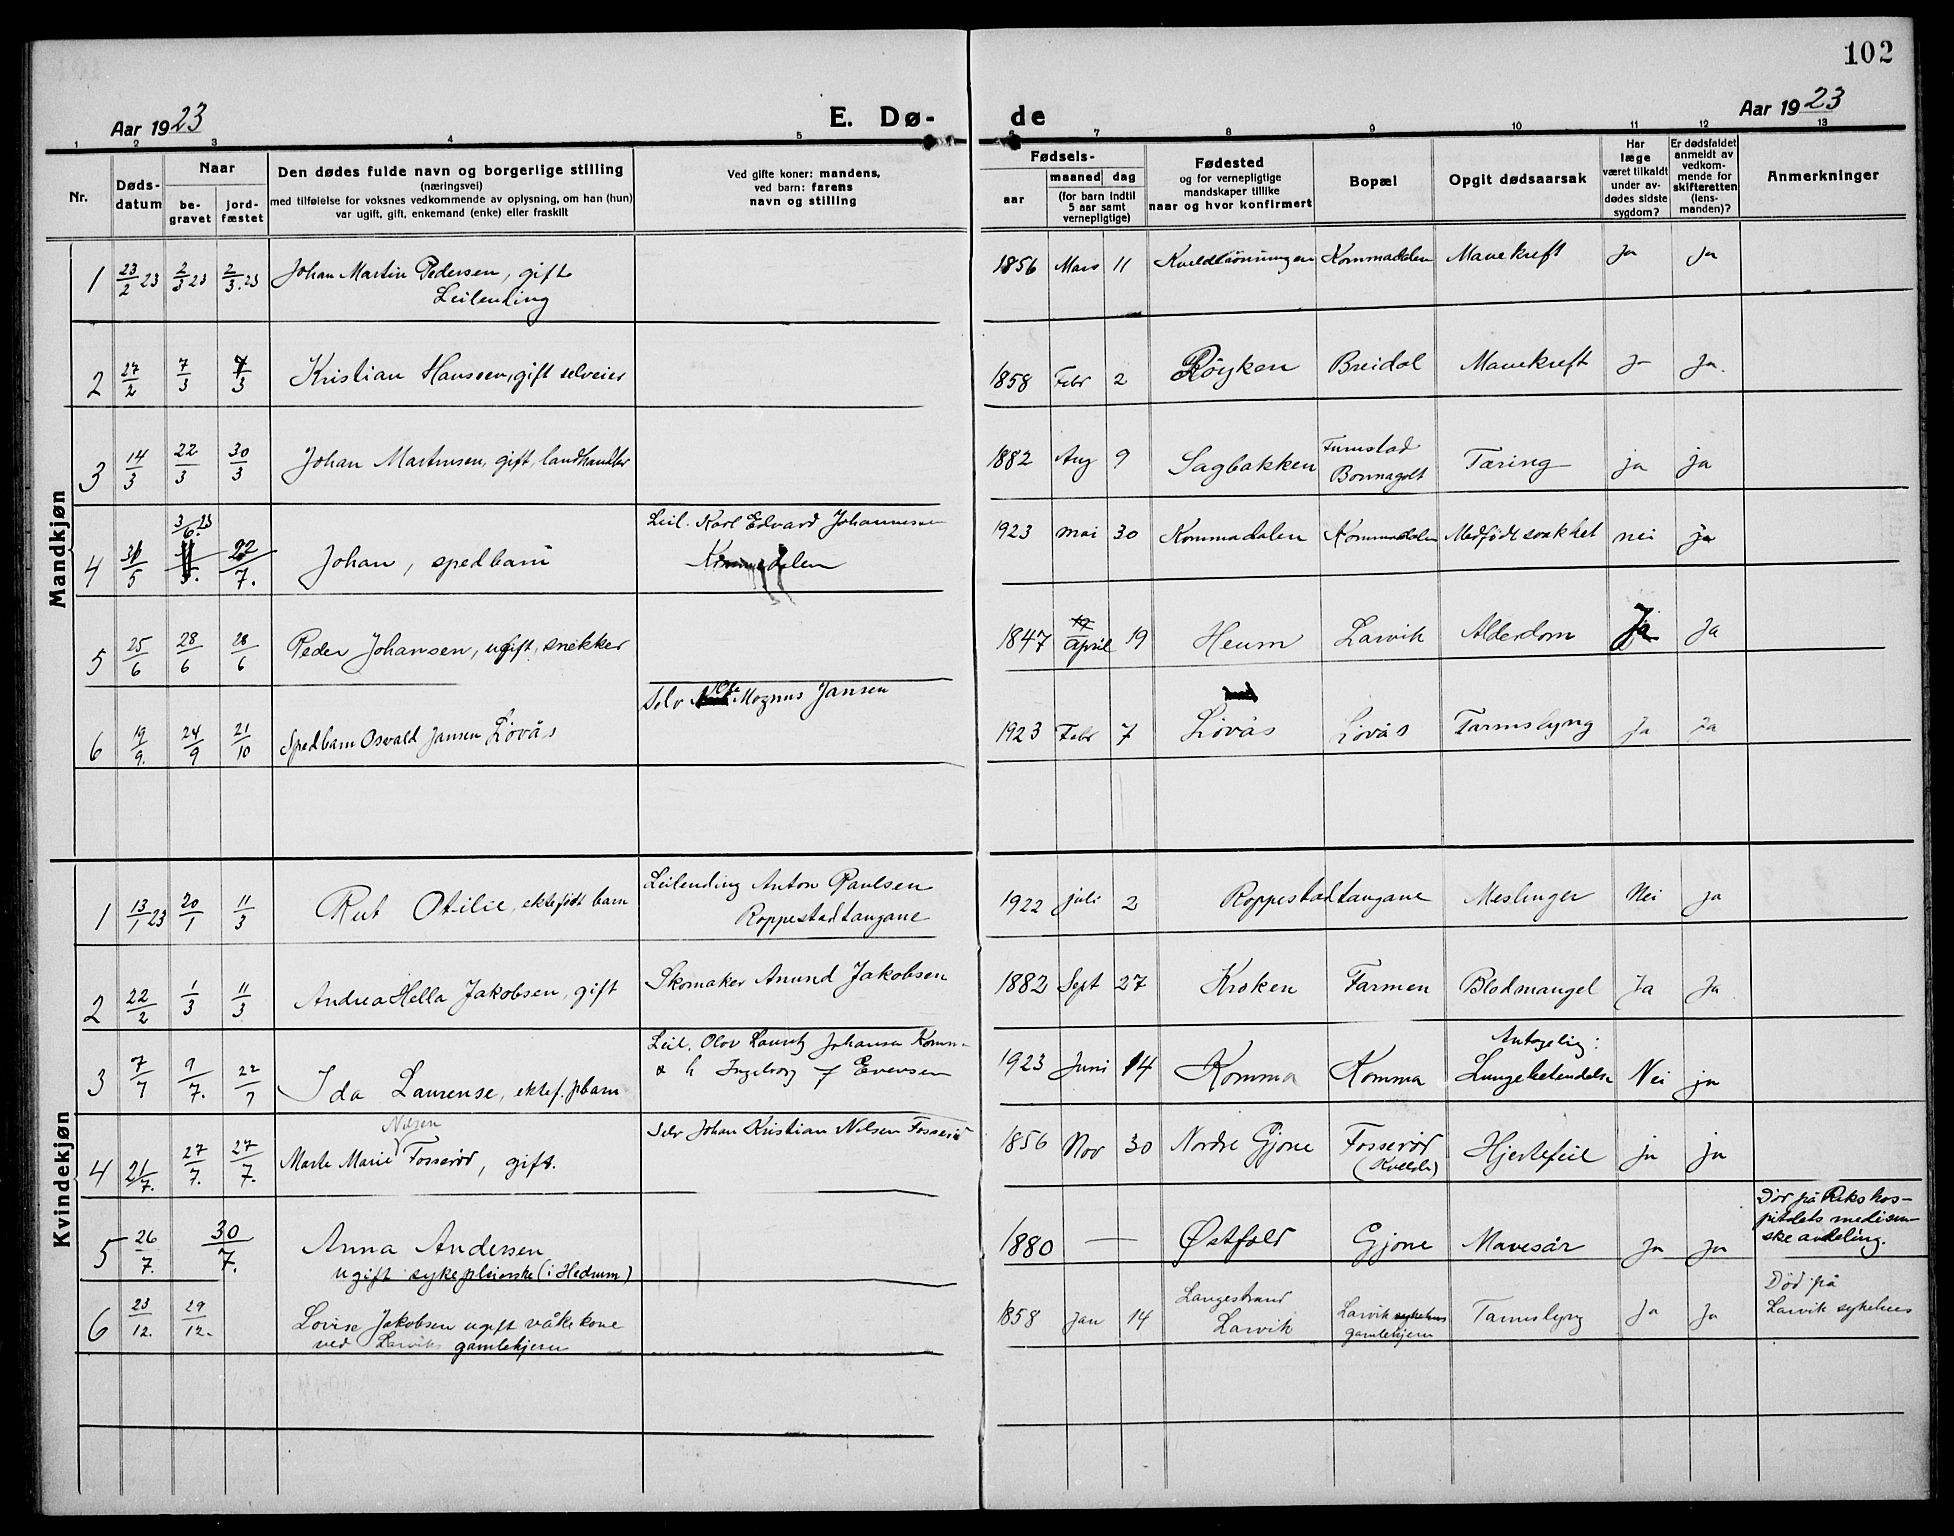 102
Aar 1923
E. Dø-
de
Aar 1923
1 2 3 4 5 6 7 8 9 10 11 12 13
Nr.
Døds-
datum
Naar
be-
gravet
jord-
fæstet
Den dødes fulde navn og borgerlige stilling
(næringsvei)
med tilføielse for voksnes vedkommende av oplysning, om han (hun)
var ugift, gift, enkemand (enke) eller fraskilt
Ved gifte koner: mandens,
ved barn: farens
navn og stilling
Fødsels-
aar
maaned dag
(for barn indtil
5 aar samt
vernepligtige)
Fødested
og for vernepligtige
mandskaper tillike
naar og hvor konfirmert
Bopæl
Opgit dødsaarsak
Har
læge
været tilkaldt
under av-
dødes sidste
sygdom?
Er dødsfaldet
anmeldt av
vedkom-
mende for
skifteretten
(lens-
manden)?
Anmerkninger
Mandkjøn
1 23/2 23 2/3 23 2/3.23 Johan Martin Pedersen, gift 1856 Mars 11 Kommadalen Mavekreft Ja Ja
Leilending
2 27/2 7/3 7/3 Kristian Hansen, gift selveier 1858 Febr 2 Røyken Breidal Mavekreft Ja Ja.
3 14/3 22/3 30/3 Johan Martinsen, gift, landhandler 1882 Aug 9 Sagbakken Tæring ja ja
4 31/5 3/6.23 22/7. Johan, spedbarn Leil. Karl Edvard Johannessen 1923 mai 30 Kommadalen Kommadalen Medfødt svakhet nei ja
Kommedalen
5 25/6 28/6 28/6 Peder Johansen, ugift, snekker 1847 April 19 Heum Larvik Alderdom Ja Ja
6 19/9. 24/9 21/10 Spedbarn Osvald Jansen Løvås Selv Magnus Jansen 1923 Febr 7 Løvås Løvås Tarmslyng Ja Ja
Kvindekjøn
1 13/1 23 20/1 11/3 Rut Otilie, ektefødt barn Leilending Anton Paulsen 1922 juli 2 Roppestadtangane Meslinger Nei ja
Roppestadtangane
2 22/2 1/3 11/3 Andrea Hella Jakobsen, gift Skomaker Anund Jakobsen 1882 Sept 27 Kroken Farmen Blodmangel Ja Ja
3 7/7 9/7. 22/7 Ida Laurense, ektef. pbarn Leil. Olov Lauritz Johansen Komm- 1923 Juni 14 Komma Komma Antagelig: Lungebetendelse Nei ja
& h Ingeborg f Evensen
4 21/7. 27/7. 27/7. Marte Marie Nilsen Fosserød, gift. Selv Johan Kristian Nilsen Fosserød 1856 Nov 30 Nordre Gjone Fosserød Hjertefeil ja ja
(Kvelde)
5 26/7. 30/7. Anna Andersen 1880 — Østfold Gjone Mavesår Ja Ja Død på Rikshos-
pitalets medisin-
ske avdeling.
ugift sykepleierske (i Hedrum)
6 23/12. 29/12. Lovise Jakobsen ugift våkekone 1858 Jan 14 Langestrand Larvik Larvik sykehus gamlehjem Tarmslyng Ja Ja Død på
Larvik sykehus
ved Larviks gamlehjem